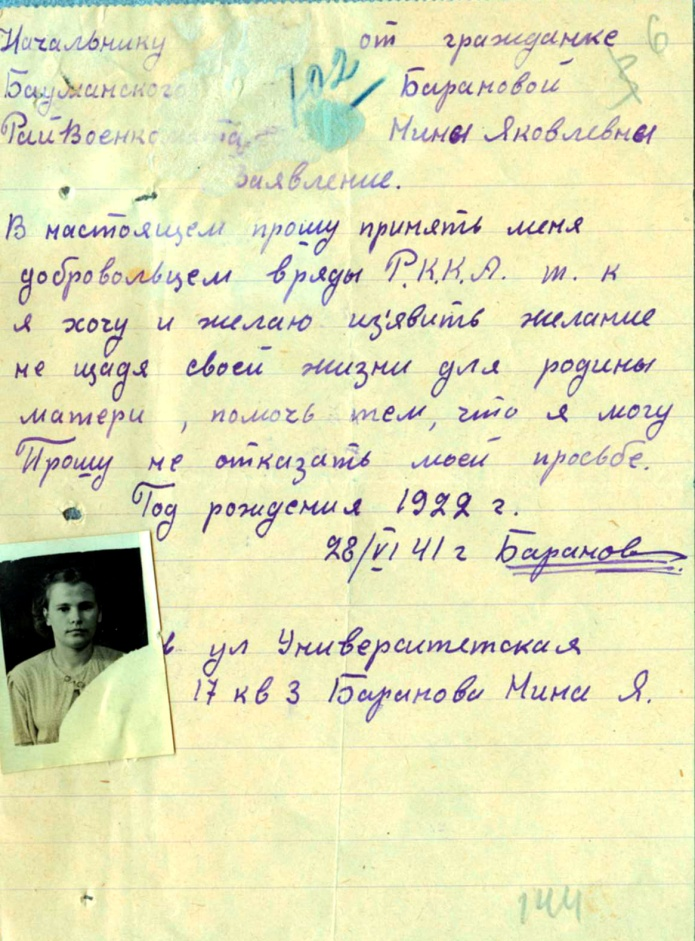 Начальнику от гражданке 6
Бауманского 702 Барановой
РайВоенкомата Нины Яковлевны
Заявление.
В настоящем прошу принять меня
добровольцем в ряды Р.К.К.А. т. к
я хочу и желаю из'явить желание
не щадя своей жизни для родины
матери , помочь тем, что я могу
Прошу не отказать моей просьбе.
Год рождения 1922 г.
28/VI 41 г Баранов
ул Университетская
17 кв 3 Баранова Нина Я.
144